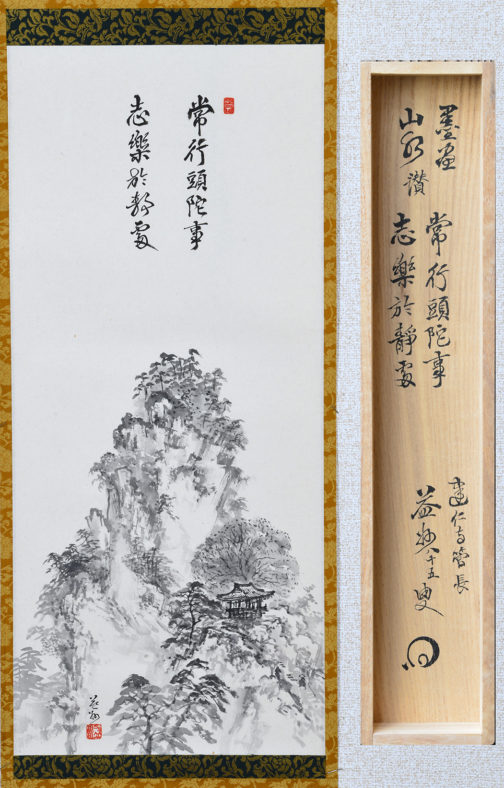 常行頭陀事
志樂於静處
益州
墨画
山水 讃
常行頭陀事
志樂於靜處
建仁寺管長
益州八十五叟